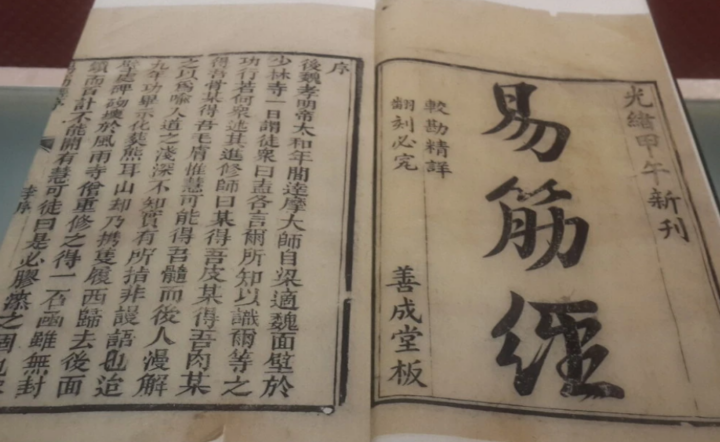 光緒甲午新刊
易筋經
較勘精詳
翻刻必究
善成堂板
序
後魏孝明帝太和年間達摩大師自梁適魏面壁於
少林寺一日謂徒衆曰盍各言爾所知以識爾等之
功行若何衆述其進修師曰某得吾皮某得吾肉某
得吾骨某得吾毛膚惟慧可能得吾髓而後人漫解
之以爲喻入道之淺深不知實有所指非謾語也迨
九年功畢示化葬熊耳山却乃携隻履西歸去後面
壁處碑砌壞於風雨寺僧重修之得一石函雖無封
鎖而百計不能開有慧可徒曰是必膠漆之固也